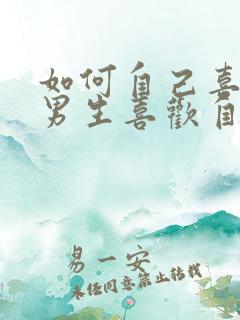 如何自己喜
男生喜歡自
易一安
未经同意禁止转载